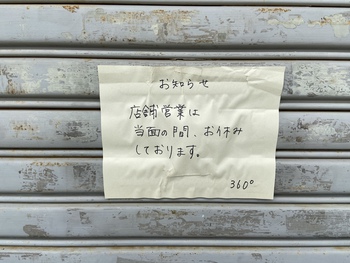 お知らせ
店舗営業は
当面の間、お休み
しております。
360°